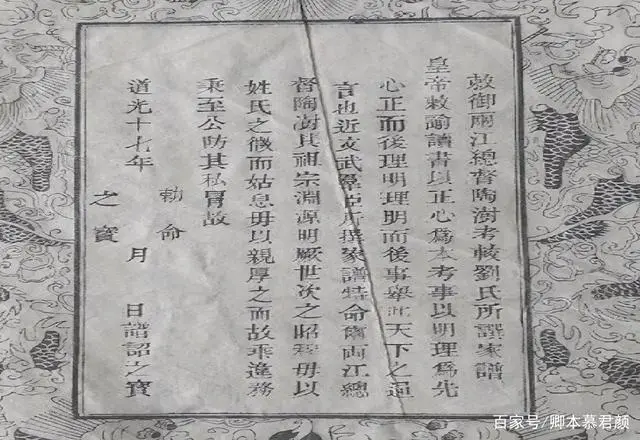 敕御兩江總督陶澍考較劉氏所譔家譜
皇帝敕諭讀書以正心爲本考事以明理爲先
心正而後理明理明而後事舉此天下之通
言也近文武羣臣所撰家譜特命爾兩江總
督陶澍其祖宗淵源明厥世次之昭穆毋以
姓氏之微而姑息毋以親厚之而故乖違務
乘至公防其私冒故
勅命
道光十七年 月 日譜詔之寶
之寶
百家号/卿本慕君颜